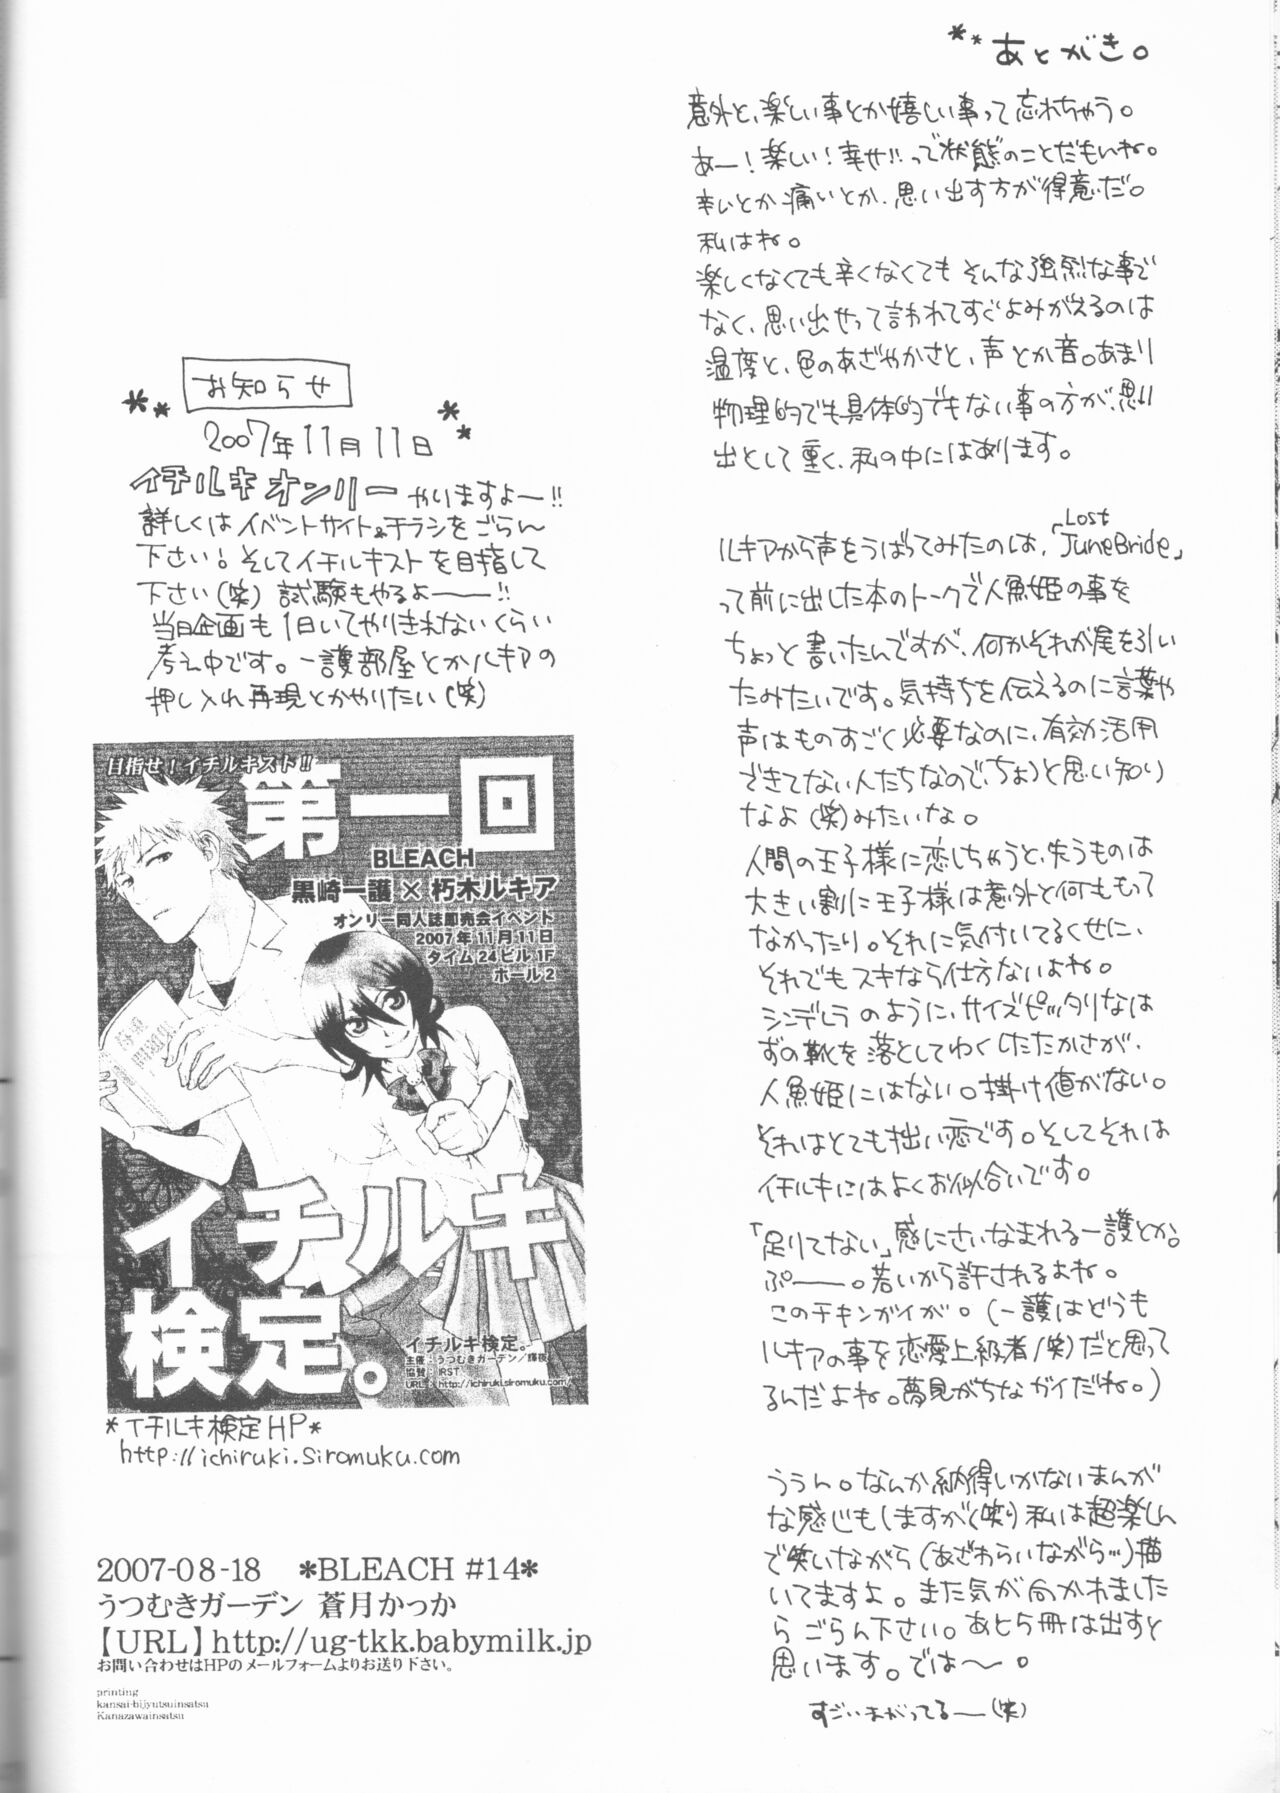 あとがき。
意外と、楽しい事とか嬉しい事って忘れちゃう。
あー!楽しい!幸せ!!って状態のことだもいね。
辛いとか痛いとか、思い出す方が得意だ。
私はね。
楽しくなくても辛くなくても そんな強烈な事で
なく、思い出せって言われてすぐよみがえるのは
温度と、色のあざやかさと、声とか音。あまり
物理的でも具体的でもない事の方が、思い
出として重く、私の中にはあります。
ルキアから声をうばってみたのは、「Lost JuneBride」
って前に出した本のトークで人魚姫の事を
ちょっと書いたんですが、何かそれが尾を引い
たみたいです。気持ちを伝えるのに言葉や
声はものすごく必要なのに、有効活用
できてない人たちなので、ちょっと思い知り
なよ(笑)みたいな。
人間の王子様に恋しちゃうと、失うものは
大きい割に王子様は意外と何ももって
なかったり。それに気付いてるくせに、
それでもスキなら仕方ないよね。
シンデレラのように、サイズピッタリなは
ずの靴を落としてわくしたたかさが、
人魚姫にはない。掛け値がない。
それはとても拙い恋です。そしてそれは
イチルキにはよくお似合いです。
「足りてない」感にさいなまれる一護とか。
ぷーー。若いから許されるよね。
このチキンガイが。(一護はどうも
ルキアの事を恋愛上級者(笑)だと思って
るんだよね。夢見がちなガイだね。)
ううん。なんか納得いかないまんが
な感じもしますが(笑)私は超楽しん
で笑いながら(あざわらいながら…)描
いてますよ。また気が向かれました
ら ごらん下さい。あと5冊は出すと
思います。では〜。
すごいまがってるー(笑)
お知らせ
2007年11月11日
イチルキオンリーやりますよー!!
詳しくはイベントサイト&チラシをごらん
下さい!そしてイチルキストを目指して
下さい(笑) 試験もやるよー!!
当日企画も1日いてやりきれないくらい
考え中です。一護部屋とかルキアの
押し入れ再現とかやりたい(笑)
目指せ!イチルキスト!!
第一回
BLEACH
黒崎一護×朽木ルキア
オンリー同人誌即売会イベント
2007年11月11日
タイム24ビル1F
ホール2
イチルキ
検定。
イチルキ検定。
主催:うつむきガーデン/輝夜
協賛:IRST
URL:http://ichiruki.siromuku.com/
*イチルキ検定HP*
http://ichiruki.siromuku.com
2007-08-18 *BLEACH #14*
うつむきガーデン 蒼月かっか
【URL】http://ug-tkk.babymilk.jp
お問い合わせはHPのメールフォームよりお送り下さい。
printing
kansai-bijyutsuinsatsu
Kanazawainsatsu